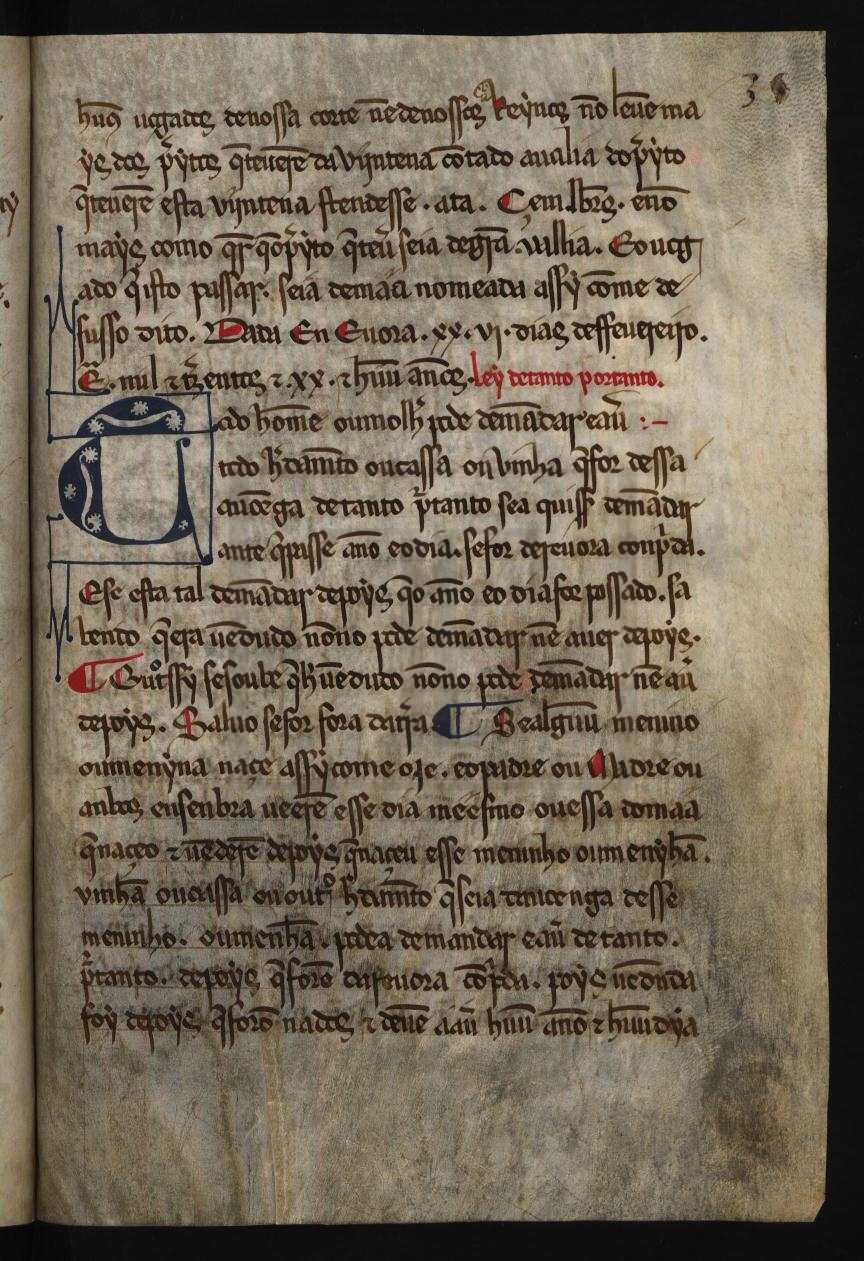 36
hũus uogados de nossa corte nẽ de nossos Reynos nõ leuẽ ma
ys dos p̃ytos q̃ teuerẽ da vijntena cõtado aualia do p̃yto
q̃ teuerẽ esta vijntena stendesse · ata · Cem lbr̃s · enõ
mays como q̃r q̃ o p̃yto q̃ teũ seia de grã · uallia · E o uog
ado q̃ isto passar · seia demãda nomeada assy cõme de
susso dito · Dada En Euora · xx · vj · dias deffeuereiro ·
E · mil ⁊ trezentos ⁊ · xx · ⁊ hũu ãnos · ley de tanto por tanto ·
Todo home ou molh̃ pode demãdar eaũ : –
todo h̃damẽto ou cassa ou vinha q̃ for dessa
auoẽga de tanto p̃ tanto sea quiss̃ demãdar
ante q̃ passe ãno eo dia · se for de reuora conp̃da ·
E se esta tal demãdar depoys q̃ o ãno eo dia for possado · sa
bendo q̃ era uẽdudo nõno pode demãdar nẽ auer depoys ·
¶ Outossy se soube q̃ h̃ uẽdudo nõno pode demãdar nẽ aũ
depoys · Saluo se for fora da t̃ra ¶ Se algũu menino
ou menyna naçe assy come oje · eo padre ou Madre ou
anbos ensenbra uẽerẽ esse dia meesmo ou essa domaa
q̃ naceo ⁊ uẽderẽ depoys q̃ naceu esse meninho ou menỹha ·
vinhã ou cassa ou out̃o h̃damẽto q̃ seia dauoenga desse
meninho · ou menĩha · podea demandar eaũ de tanto ·
p̃ tanto · depoys q̃ forõ da reuora cõp̃da · poys uẽduda
foy depoys q̃ forõ nados ⁊ deuẽ aaũ hũu ãno ⁊ hũu dya